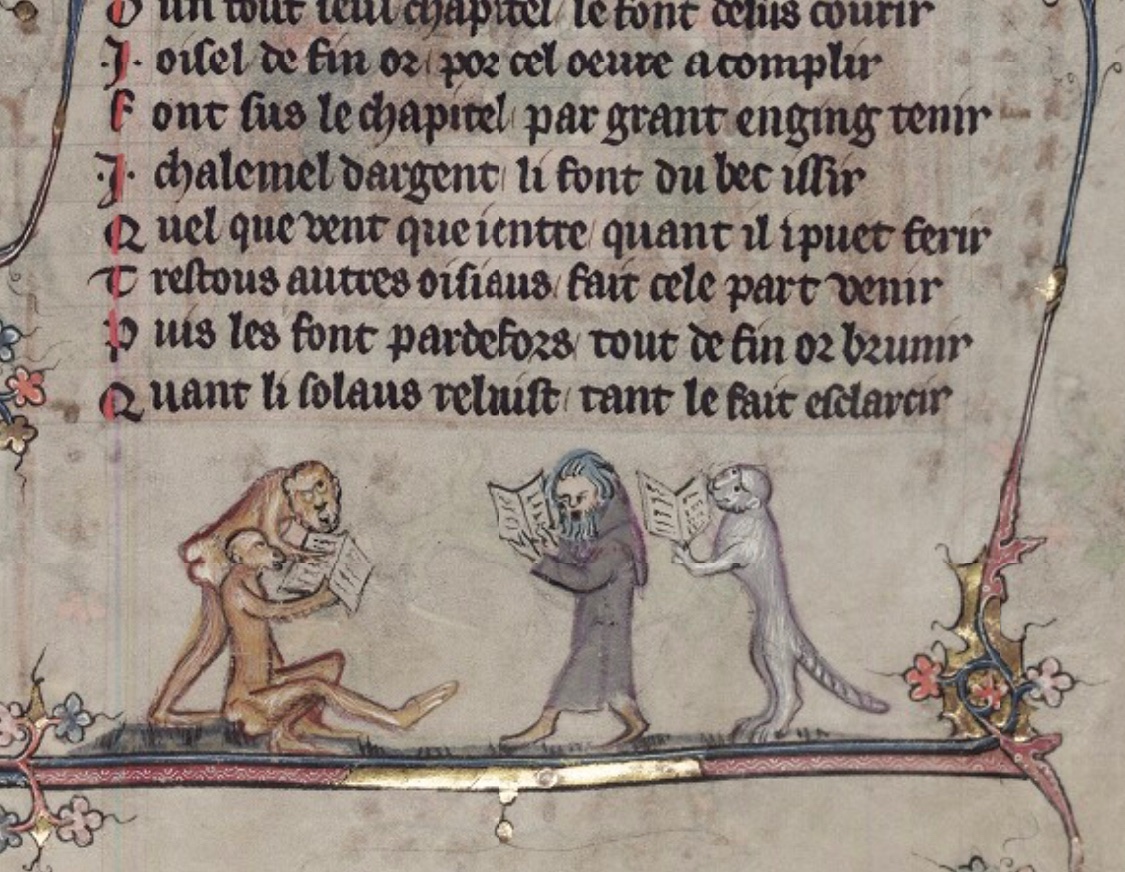 D un tout seul chapitel / le font desus courir
.I. oisel de fin or / por cel oeure acomplir
F ont sus le chapitel / par grant enging tenir
.I. chalemel dargent / li font du bec issir
Q uel que vent que ientre / quant il ipuet ferir
T restous autres oisiaus / fait cele part venir
P uis les font pardefors / tout de fin or brunir
Q uant li solaus reluist / tant le fait esclarcir